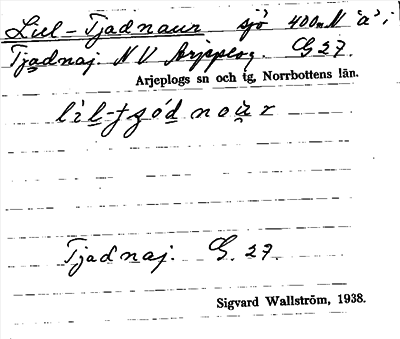 Lill-Tjadnaur sjö 400 m N "a" i
Tjadnaj. N V Arjeplog. G 27.
Arjeplogs sn och tg, Norrbottens län.
Tjadnaj. G. 27.
Sigvard Wallström, 1938.